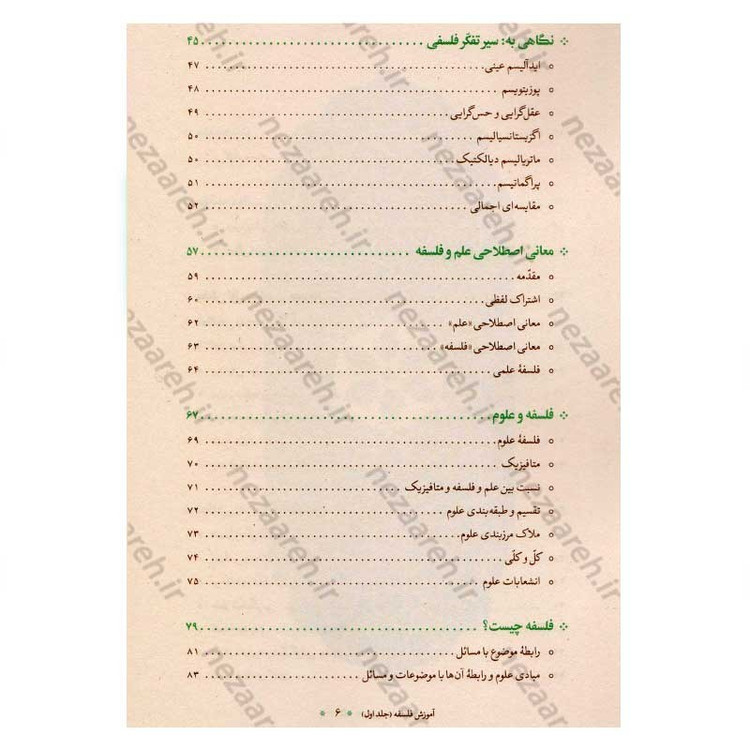 نگاهی به: سیر تفکّر فلسفی ۴۵
ایدآلیسم عینی ۴۷
پوزیتویسم ۴۸
عقل‌گرایی و حس‌گرایی ۴۹
اگزیستانسیالیسم ۵۰
ماتریالیسم دیالکتیک ۵۰
پراگماتیسم ۵۱
مقایسه‌ای اجمالی ۵۲
معانی اصطلاحی علم و فلسفه ۵۷
مقدّمه ۵۹
اشتراک لفظی ۶۰
معانی اصطلاحی «علم» ۶۲
معانی اصطلاحی «فلسفه» ۶۳
فلسفهٔ علمی ۶۴
فلسفه و علوم ۶۷
فلسفهٔ علوم ۶۹
متافیزیک ۷۰
نسبت بین علم و فلسفه و متافیزیک ۷۱
تقسیم و طبقه‌بندی علوم ۷۲
ملاک مرزبندی علوم ۷۳
کلّ و کلّی ۷۴
انشعابات علوم ۷۵
فلسفه چیست؟ ۷۹
رابطهٔ موضوع با مسائل ۸۱
مبادی علوم و رابطهٔ آن‌ها با موضوعات و مسائل ۸۳
آموزش فلسفه (جلد اول) ۶
nezaareh.ir